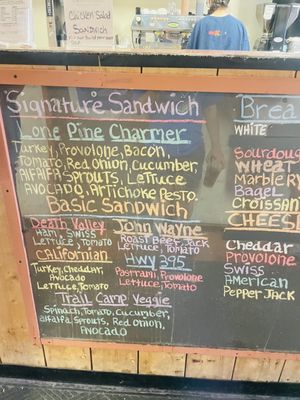 Chicken Salad
Sandwich
Signature Sandwich
Lone Pine Charmer
Turkey, Provolone, Bacon,
Tomato, Red Onion, Cucumber,
Alfalfa Sprouts, Lettuce
Avocado, Artichoke Pesto.
Basic Sandwich
Death Valley
Ham, Swiss
Lettuce, Tomato
Californian
Turkey, Cheddar,
Avocado
Lettuce, Tomato
John Wayne
Roast Beef, Jack
Lettuce, Tomato
Hwy 395
Pastrami, Provolone
Lettuce, Tomato
Trail Camp Veggie
Spinach, Tomato, Cucumber,
Alfalfa Sprouts, Red Onion,
Avocado
Brea
White
Sourdoug
Wheat
Marble Ry
Bagel
Croissan
Cheese
Cheddar
Provolone
Swiss
American
Pepper Jack